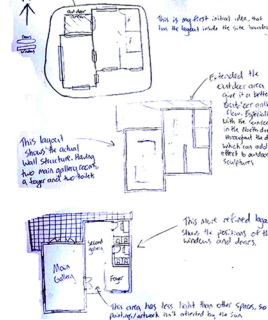 Outdoor
Doors
Windows
This is my first initial idea, that
has the layout inside the site bounda
Extended the
outdoor area
give it a bette
outdoor gall
flow. Especiall
with the
in the North
throughout the d
which can add
effect to outdoor
sculptures
This layout
shows the actual
wall structure. Having
two main gallery rooms
a foyer and two toilets
This more refined layo
shows the positions of
windows and doors.
second
gallery
Main
Gallery
Foyer
This area has less light than other spaces, so
paintings/artwork isn't affected by the sun